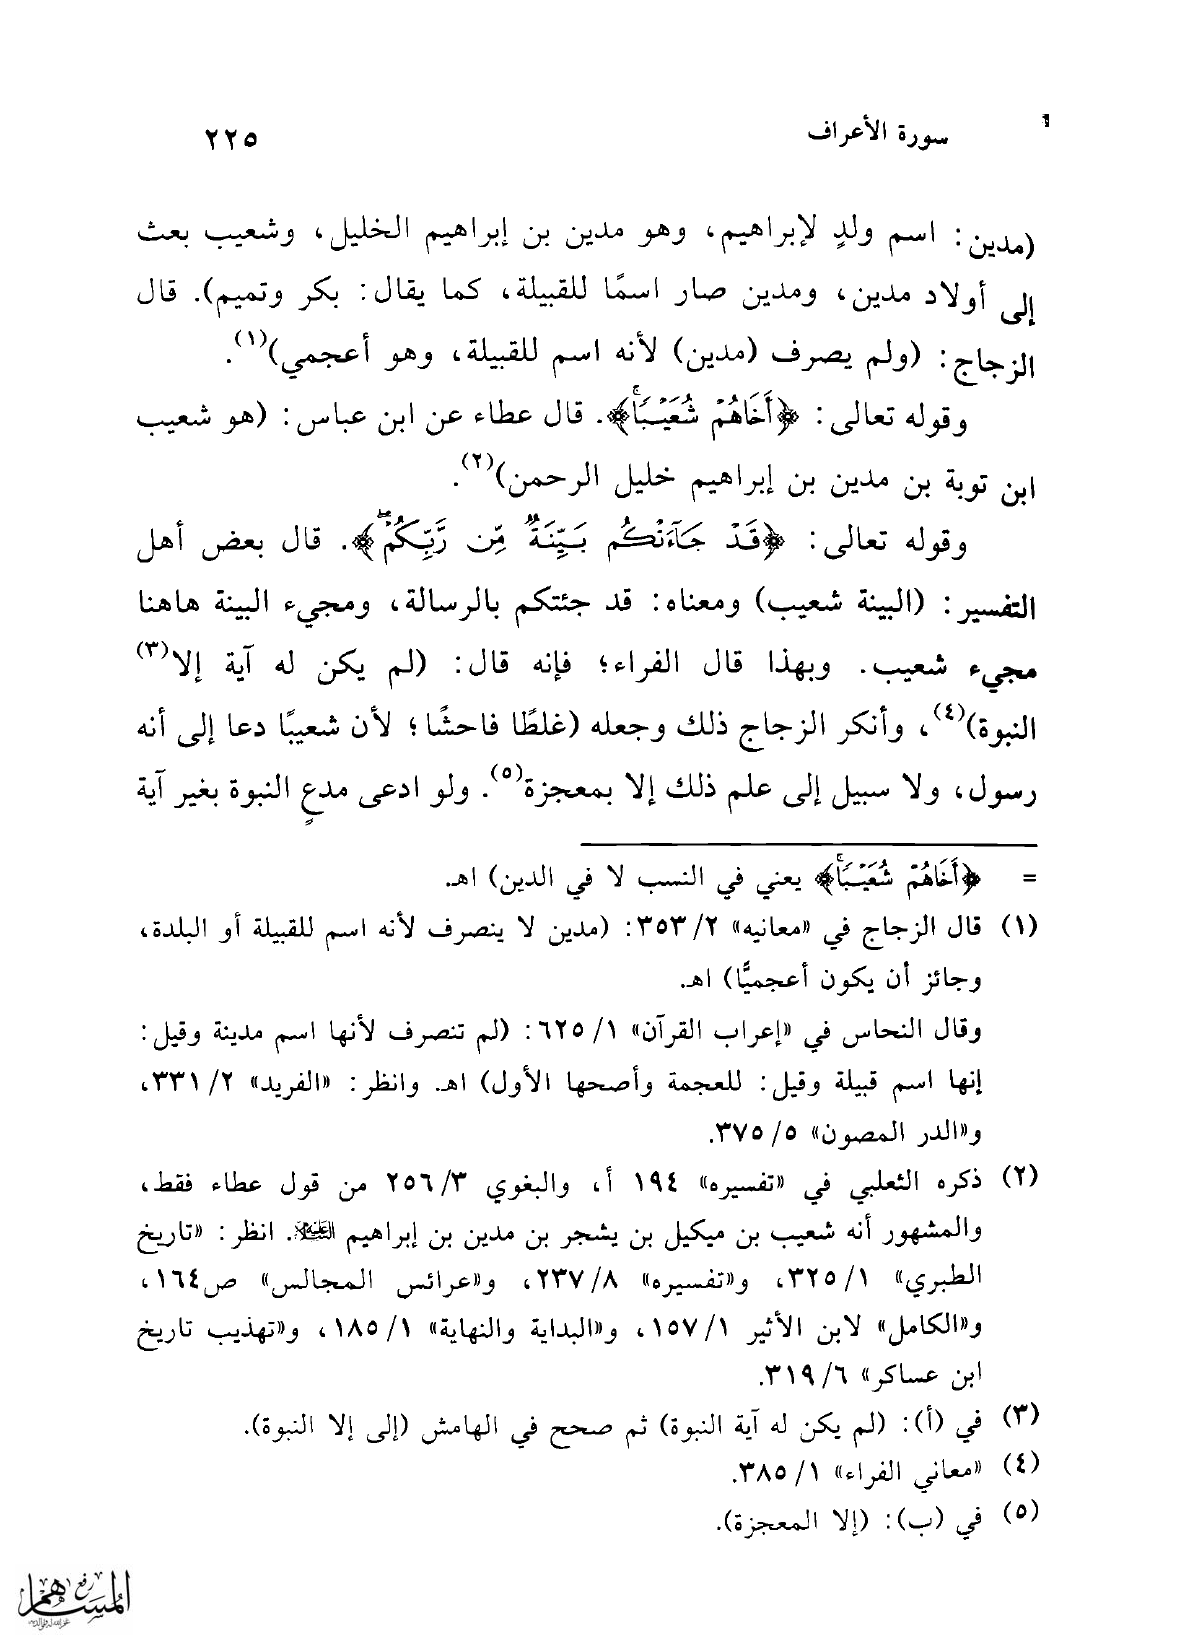 سورة الأعراف ٢٢٥
(مدين: اسم ولدٍ لإبراهيم، وهو مدين بن إبراهيم الخليل، وشعيب بعث
إلى أولاد مدين، ومدين صار اسمًا للقبيلة، كما يقال: بكر وتميم). قال
الزجاج: (ولم يصرف (مدين) لأنه اسم للقبيلة، وهو أعجمي)(١).
وقوله تعالى: ﴿أَخَاهُمْ شُعَيْبًا﴾. قال عطاء عن ابن عباس: (هو شعيب
ابن توبة بن مدين بن إبراهيم خليل الرحمن)(٢).
وقوله تعالى: ﴿قَدْ جَآءَتْكُم بَيِّنَةٌ مِّن رَّبِّكُمْ﴾. قال بعض أهل
التفسير: (البينة شعيب) ومعناه: قد جئتكم بالرسالة، ومجيء البينة هاهنا
مجيء شعيب. وبهذا قال الفراء؛ فإنه قال: (لم يكن له آية إلا(٣)
النبوة)(٤)، وأنكر الزجاج ذلك وجعله (غلطًا فاحشًا؛ لأن شعيبًا دعا إلى أنه
رسول، ولا سبيل إلى علم ذلك إلا بمعجزة(٥). ولو ادعى مدعٍ النبوة بغير آية
= ﴿أَخَاهُمْ شُعَيْبًا﴾ يعني في النسب لا في الدين) اهـ.
(١) قال الزجاج في «معانيه» ٢/ ٣٥٣: (مدين لا ينصرف لأنه اسم للقبيلة أو البلدة،
وجائز أن يكون أعجميًّا) اهـ.
وقال النحاس في «إعراب القرآن» ١/ ٦٢٥: (لم تنصرف لأنها اسم مدينة وقيل:
إنها اسم قبيلة وقيل: للعجمة وأصحها الأول) اهـ. وانظر: «الفريد» ٢/ ٣٣١،
و«الدر المصون» ٥/ ٣٧٥.
(٢) ذكره الثعلبي في «تفسيره» ١٩٤ أ، والبغوي ٣/ ٢٥٦ من قول عطاء فقط،
والمشهور أنه شعيب بن ميكيل بن يشجر بن مدين بن إبراهيم عليه السلام. انظر: «تاريخ
الطبري» ١/ ٣٢٥، و«تفسيره» ٨/ ٢٣٧، و«عرائس المجالس» ص١٦٤،
و«الكامل» لابن الأثير ١/ ١٥٧، و«البداية والنهاية» ١/ ١٨٥، و«تهذيب تاريخ
ابن عساكر» ٦/ ٣١٩.
(٣) في (أ): (لم يكن له آية النبوة) ثم صحح في الهامش (إلى إلا النبوة).
(٤) «معاني الفراء» ١/ ٣٨٥.
(٥) في (ب): (إلا المعجزة).